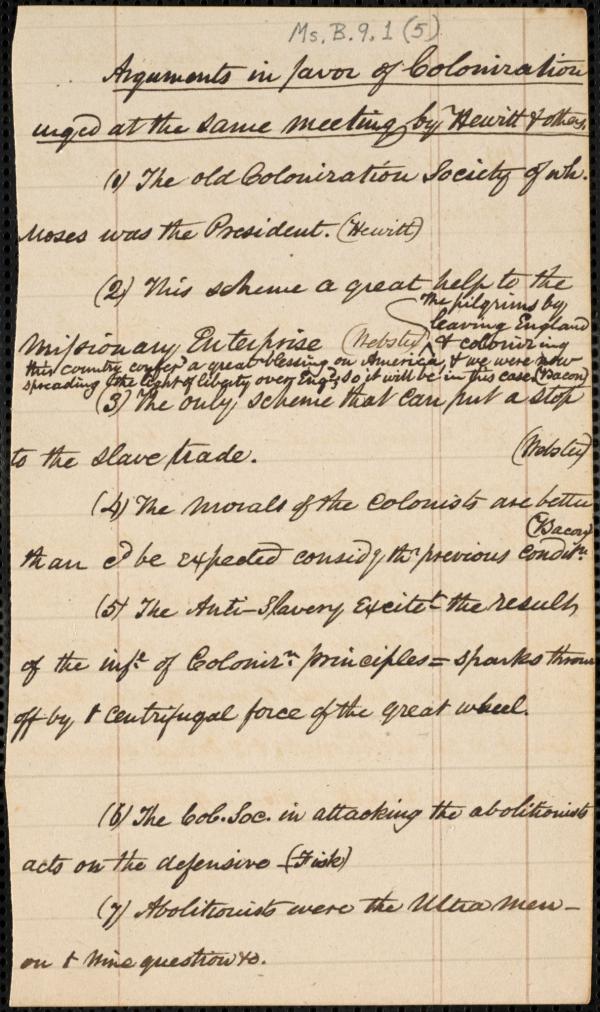 Ms. B. 9. 1 (5)
Arguments in favor of Colonization
urged at the same meeting by Hewitt & others.
(1) The old Colonization Society of wh.
Moses was the President. (Hewitt)
(2) This scheme a great help to the
Missionary Enterprise (Webster)
The pilgrims by
leaving England
& colonizing
this country confer'd a great blessing on America, & we were now
spreading the light of liberty over Eng'd; So it will be in this case. (Bacon)
(3) The only scheme that can put a stop
to the slave trade. (Webster)
(4) The morals of the colonists are better
(Bacon)
than cd be expected considg thr previous conditn.
(5) The Anti-Slavery Excitet the result
of the inft. of Colonizn. principles = sparks thrown
off by t centrifugal force of the great wheel.
(6) The Col. Soc. in attacking the abolitionists
acts on the defensive - (Fisk)
(7) Abolitionists were the Ultra men -
on t Wine question &c.